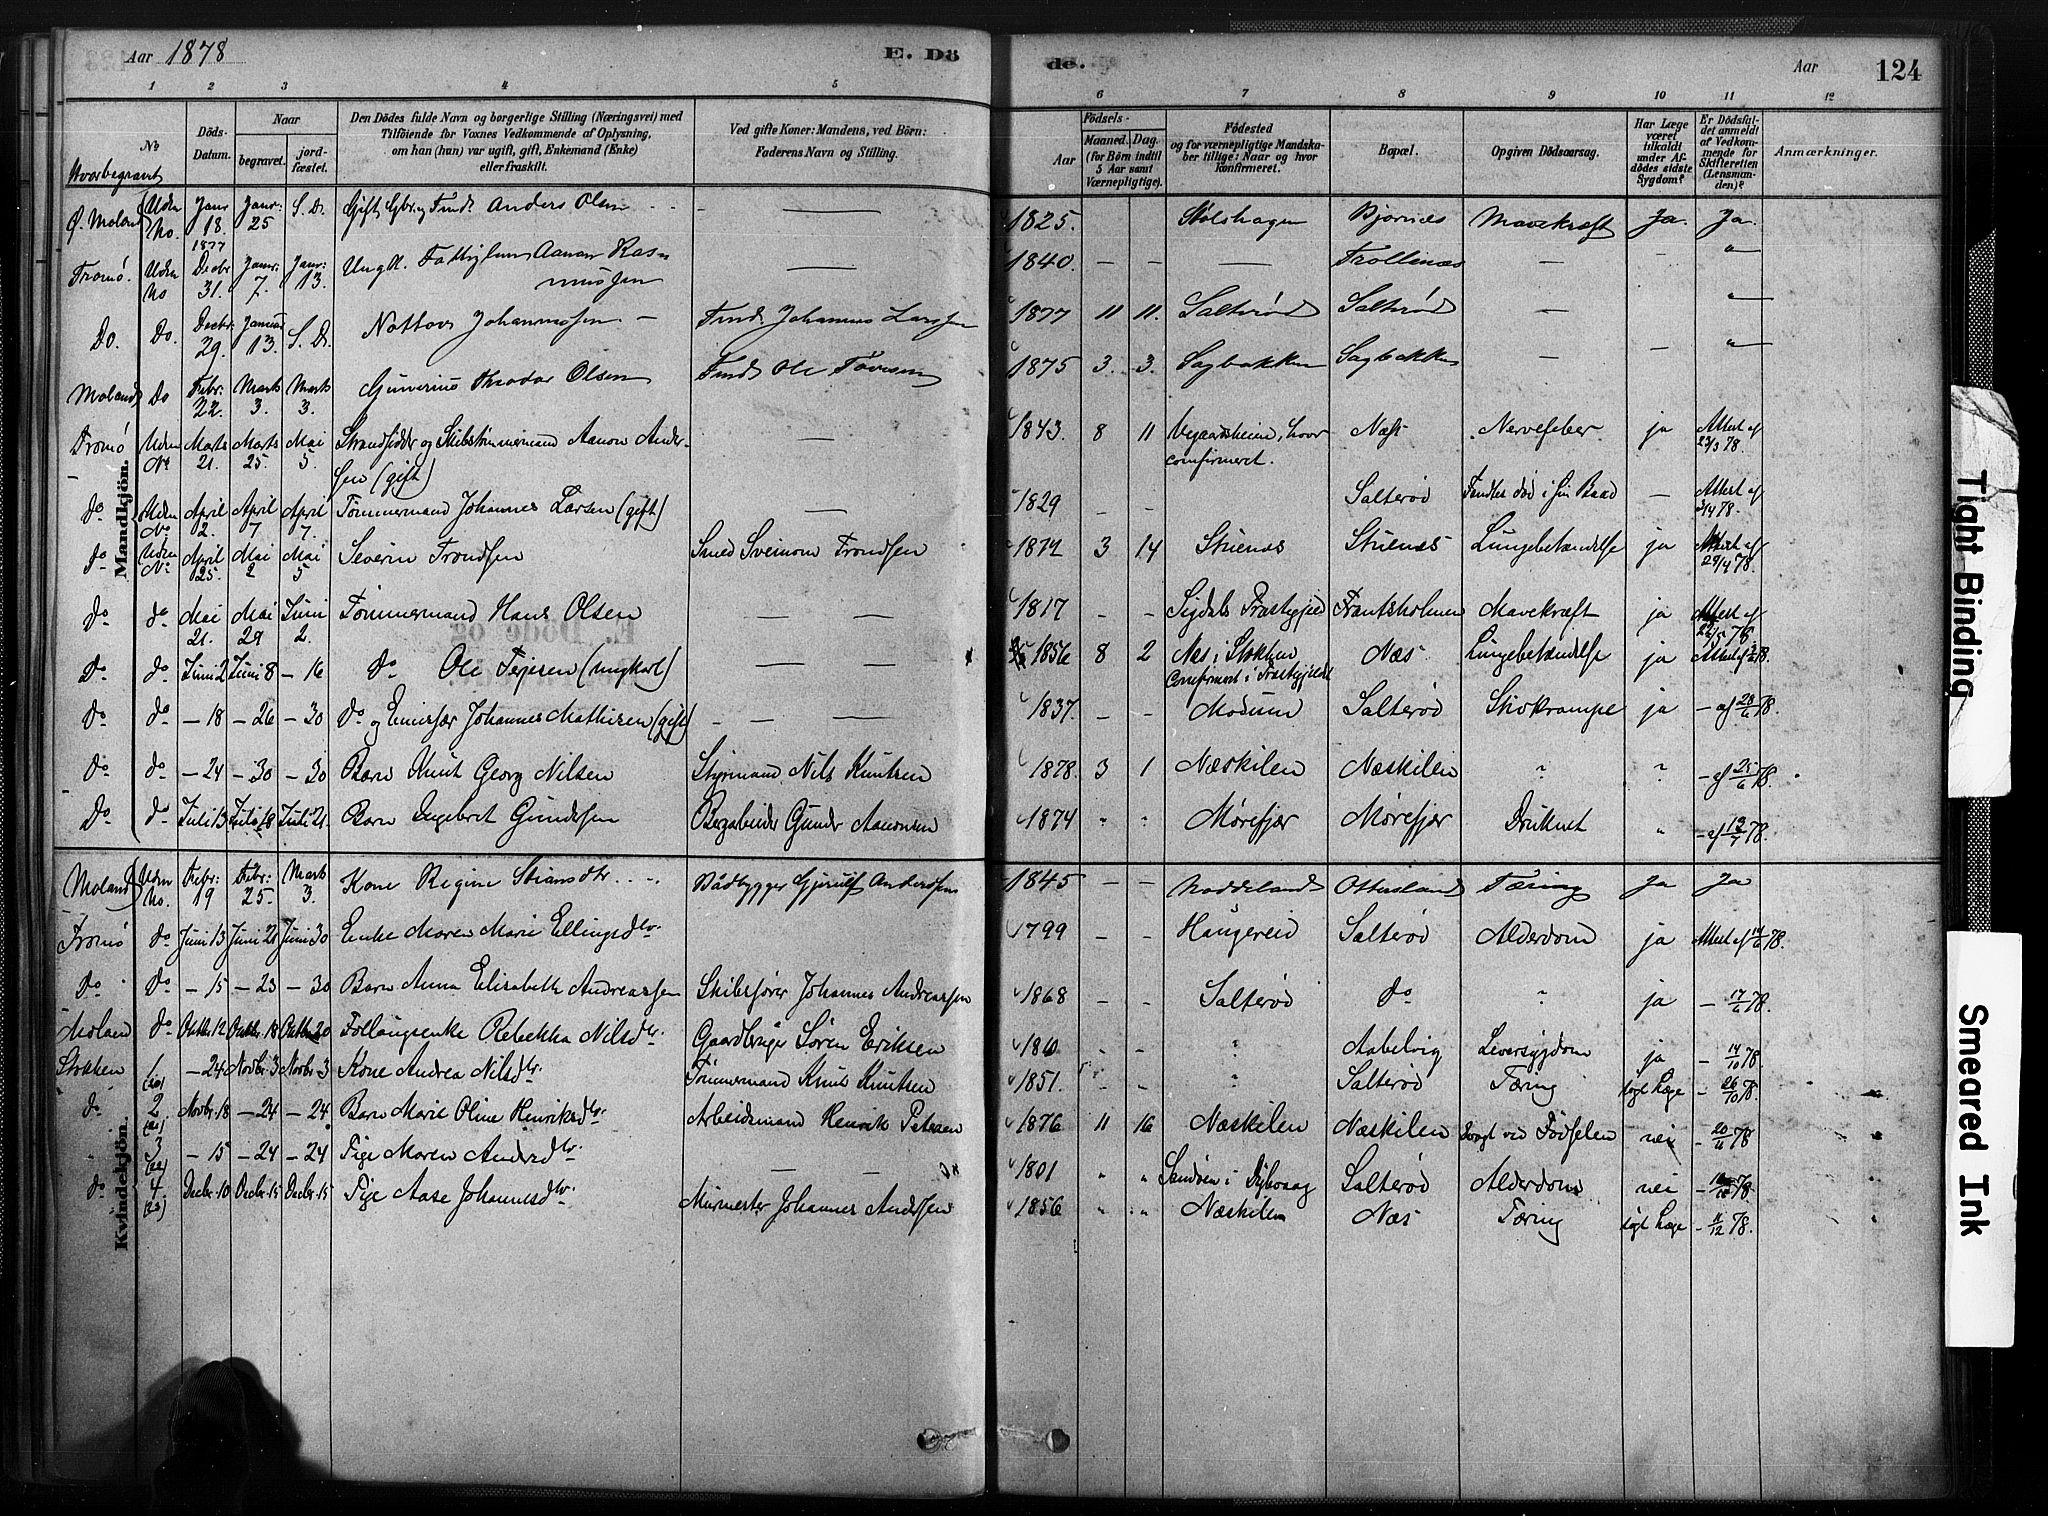 Aar 1878
E. Dö
de.
Aar
124
1 2 3 4 5
6 7 8 9 10 11 12
No
Hvor begravet
Döds-Datum.
Naar
begravet.
jordfæstet.
Den Dödes fulde Navn og borgerlige Stilling (Næringsvei) med
Tilföiende for Voxnes Vedkommende af Oplysning,
om han (hun) var ugift, gift, Enkemand (Enke)
eller fraskilt.
Ved gifte Koner: Mandens, ved Börn:
Faderens Navn og Stilling.
Födsels-
Aar
Maaned. Dag.
(for Börn indtil
5 Aar samt
Værnepligtige).
Födested
og for værnepligtige Mandskaber tillige: Naar og hvor
konfirmeret.
Bopæl.
Opgiven Dödsaarsag.
Har Læge
været
tilkaldt
under Afdödes sidste
Sygdom?
Er Dödsfaldet anmeldt
af Vedkommende for
Skifteretten
(Lensmanden)?
Anmærkninger.
Mandkjön.
Ö. Moland Uden No. Janr 18. Janr 25 S. D. Gift Gbr. og Anders Olsen — 1825. Stølshagen Bjørnes Mavekræft Ja. Ja.
Tromö. Uden No 1877 Decbr 31. Janr: 7. Janr: 13. Ungk. Aanon Rasmussen — 1840. — — — Trollenæs — — "
Do. Do. Decbr: 29. Januar 13. S. D. Johannessen — Johannes Larssen 1877 11 11. Salterød Salterød — "
Moland Do Febr. 22. Marts 3. Marts 3. Gunerius Theodor Olsen Ole 1875 3. 3. Sagbakken Sagbakken — — "
Tromö Uden No. Marts 21. Marts 25. Mai 5. Strandsidder og Skibstömmermand Aanon Andersen (gift) — 1843. 8 11 Vegaardsheien, hvor confirmeret. Næs Nervefeber ja Attest af 23/3 78
do Uden No. April 2. April 7 April 7. Tömmermand Johannes Larsen (gift) — 1829 — — Salteröd Fandtes död i sin Baad — Attest af 3/4 78.
do Uden No. April 25. Mai 2 Mai 5 Severin Trondsen Smed Trondsen 1872 3 14 Stuenæs Stuenæs Lungebetændelse ja Attest af 29/4 78.
do do Mai 21. Mai 29 Juni 2. Tömmermand Hans Olsen — — 1817 — — Sigdals Præstegjeld Frantsholmen Mavekræft ja Attest af 22/5 78
do do Juni 2 Juni 8 — 16 do Ole Terjesen (ungkarl) — — 1856 8 2 Næs i Stokken Confirmert i Præstegjeldet Næs Lungebetændelse ja Attest af 78.
do do — 18 — 26 — 30 do og Johannes Mathisen (gift) — — — 1837. — — Modum Salteröd ja — af 28/6 78.
do do — 24 — 30 — 30 Barn Knut Georg Nilsen Styrmand Nils Knutsen 1878. 3 1 Næskilen Næskilen " " — af 25/6 78.
Do do Juli 13 Juli 18 Juli 21. Barn Ingebret Gundersen Bergarbeider Gunder Aanonsen 1874 " " Mörefjær Mörefjær Druknet " — af 13/7 78.
Kvindekjön.
Moland Uden No. Febr: 19 Febr: 25. Marts 3. Kone Regine Stiansdtr. Bådbygger Andersen 1845 — — Noddeland Ottersland Tæring Ja Ja
Tromö do Juni 13 Juni 21 Juni 30 Enke Maren Marie Ellingsdtr. 1799 — — Haugereid Salteröd Alderdom ja Attest af 14/6 78.
Do do — 15 — 23 — 30 Barn Anna Elisabeth Andreassen Skibsförer Johannes Andreassen 1868 — — Salteröd do " ja — 17/6 78.
Moland do Oktbr. 12 Oktbr. 18 Oktbr. 20 Follaugsenke Rebekka Nilsdtr. Gaardbruger Sören Eriksen " " " Leversygdom ja — 14/10 78.
Stokken 1 (20) — 24 Novbr. 3 Novbr. 3 Kone Andrea Nilsdtr. Tömmermand Knut Knutsen 1851. " " " Salteröd Tæring sögt Læge — 26/10 78.
do 2 (21) Novbr. 18 — 24 — 24 Barn Marie Oline Henriksdtr. Arbeidsmand Henrik Petersen 1876 11 16 Næskilen Næskilen Svagt ved Födselen nei — 20/11 78
" 3 (22) — 15 — 24 — 24 Pige Maren Andersdtr. — — 1801 " " Sandöen i Salteröd Alderdom nei — 78
do 4 (23) Decbr. 10 Decbr. 15 Decbr. 15 Pige Aase Johannesdtr. Murmester Johannes Andersen 1856 " " Næskilen Næs Tæring sögt Læge — 11/12 78.
Tight Binding
Smeared Ink